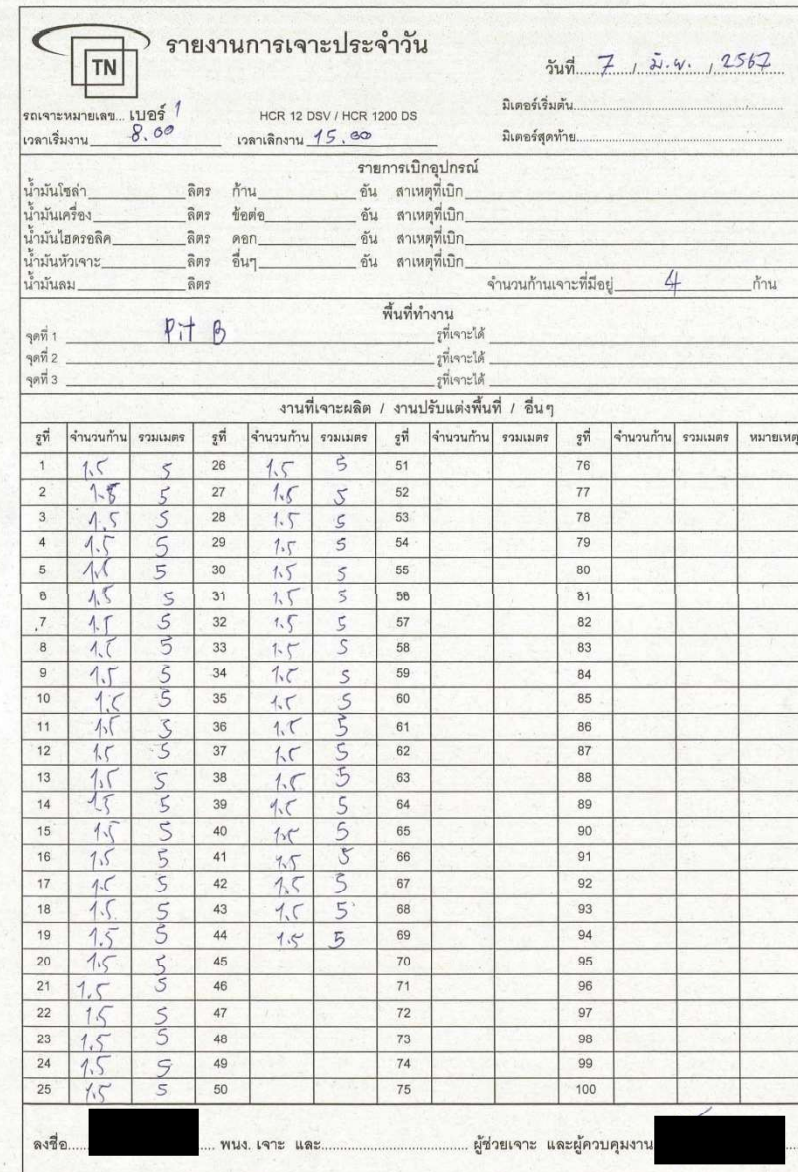 TN
รายงานการเจาะประจำวัน
วันที่ 7 / มิ.ย. / 2567
รถเจาะหมายเลข... เบอร์ 1 HCR 12 DSV / HCR 1200 DS มิเตอร์เริ่มต้น
เวลาเริ่มงาน 8.00 เวลาเลิกงาน 15.00 มิเตอร์สุดท้าย
รายการเบิกอุปกรณ์
น้ำมันโซล่า ลิตร ก้าน อัน สาเหตุที่เบิก
น้ำมันเครื่อง ลิตร ข้อต่อ อัน สาเหตุที่เบิก
น้ำมันไฮดรอลิค ลิตร ดอก อัน สาเหตุที่เบิก
น้ำมันหัวเจาะ ลิตร อื่นๆ อัน สาเหตุที่เบิก
น้ำมันลม ลิตร จำนวนก้านเจาะที่มีอยู่ 4 ก้าน
พื้นที่ทำงาน
จุดที่ 1 Pit B รูที่เจาะได้
จุดที่ 2 รูที่เจาะได้
จุดที่ 3 รูที่เจาะได้
งานที่เจาะผลิต / งานปรับแต่งพื้นที่ / อื่นๆ
รูที่ จำนวนก้าน รวมเมตร รูที่ จำนวนก้าน รวมเมตร รูที่ จำนวนก้าน รวมเมตร รูที่ จำนวนก้าน รวมเมตร หมายเหตุ
1 1.5 5 26 1.5 5 51 76
2 1.5 5 27 1.5 5 52 77
3 1.5 5 28 1.5 5 53 78
4 1.5 5 29 1.5 5 54 79
5 1.5 5 30 1.5 5 55 80
6 1.5 5 31 1.5 5 56 81
7 1.5 5 32 1.5 5 57 82
8 1.5 5 33 1.5 5 58 83
9 1.5 5 34 1.5 5 59 84
10 1.5 5 35 1.5 5 60 85
11 1.5 5 36 1.5 5 61 86
12 1.5 5 37 1.5 5 62 87
13 1.5 5 38 1.5 5 63 88
14 1.5 5 39 1.5 5 64 89
15 1.5 5 40 1.5 5 65 90
16 1.5 5 41 1.5 5 66 91
17 1.5 5 42 1.5 5 67 92
18 1.5 5 43 1.5 5 68 93
19 1.5 5 44 1.5 5 69 94
20 1.5 5 45 70 95
21 1.5 5 46 71 96
22 1.5 5 47 72 97
23 1.5 5 48 73 98
24 1.5 5 49 74 99
25 1.5 5 50 75 100
ลงชื่อ พนง. เจาะ และ ผู้ช่วยเจาะ และผู้ควบคุมงาน